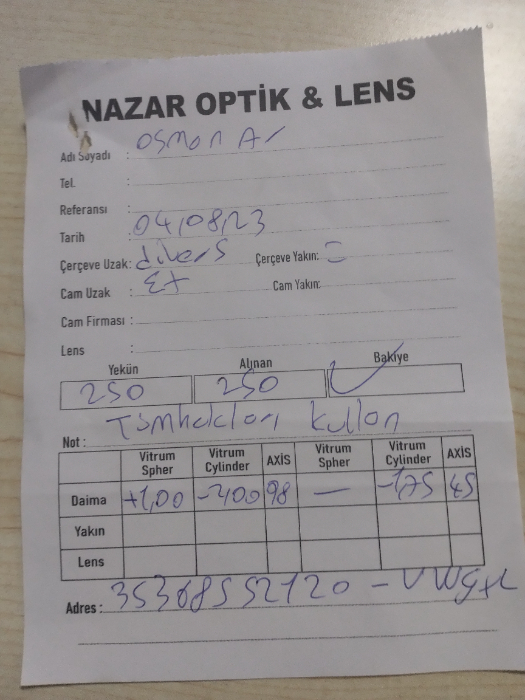 NAZAR OPTİK & LENS
Adı Soyadı : Osman
Tel. :
Referansı :
Tarih : 04,08,23
Çerçeve Uzak: divers Çerçeve Yakın: =
Cam Uzak : Ex Cam Yakın:
Cam Firması :
Lens :
Yekün Alınan Bakiye
250 250 ✓
Not : Tüm hakları kullan
Vitrum Spher Vitrum Cylinder AXİS Vitrum Spher Vitrum Cylinder AXİS
Daima +1,00 98 — -1,75 45
Yakın
Lens
Adres :